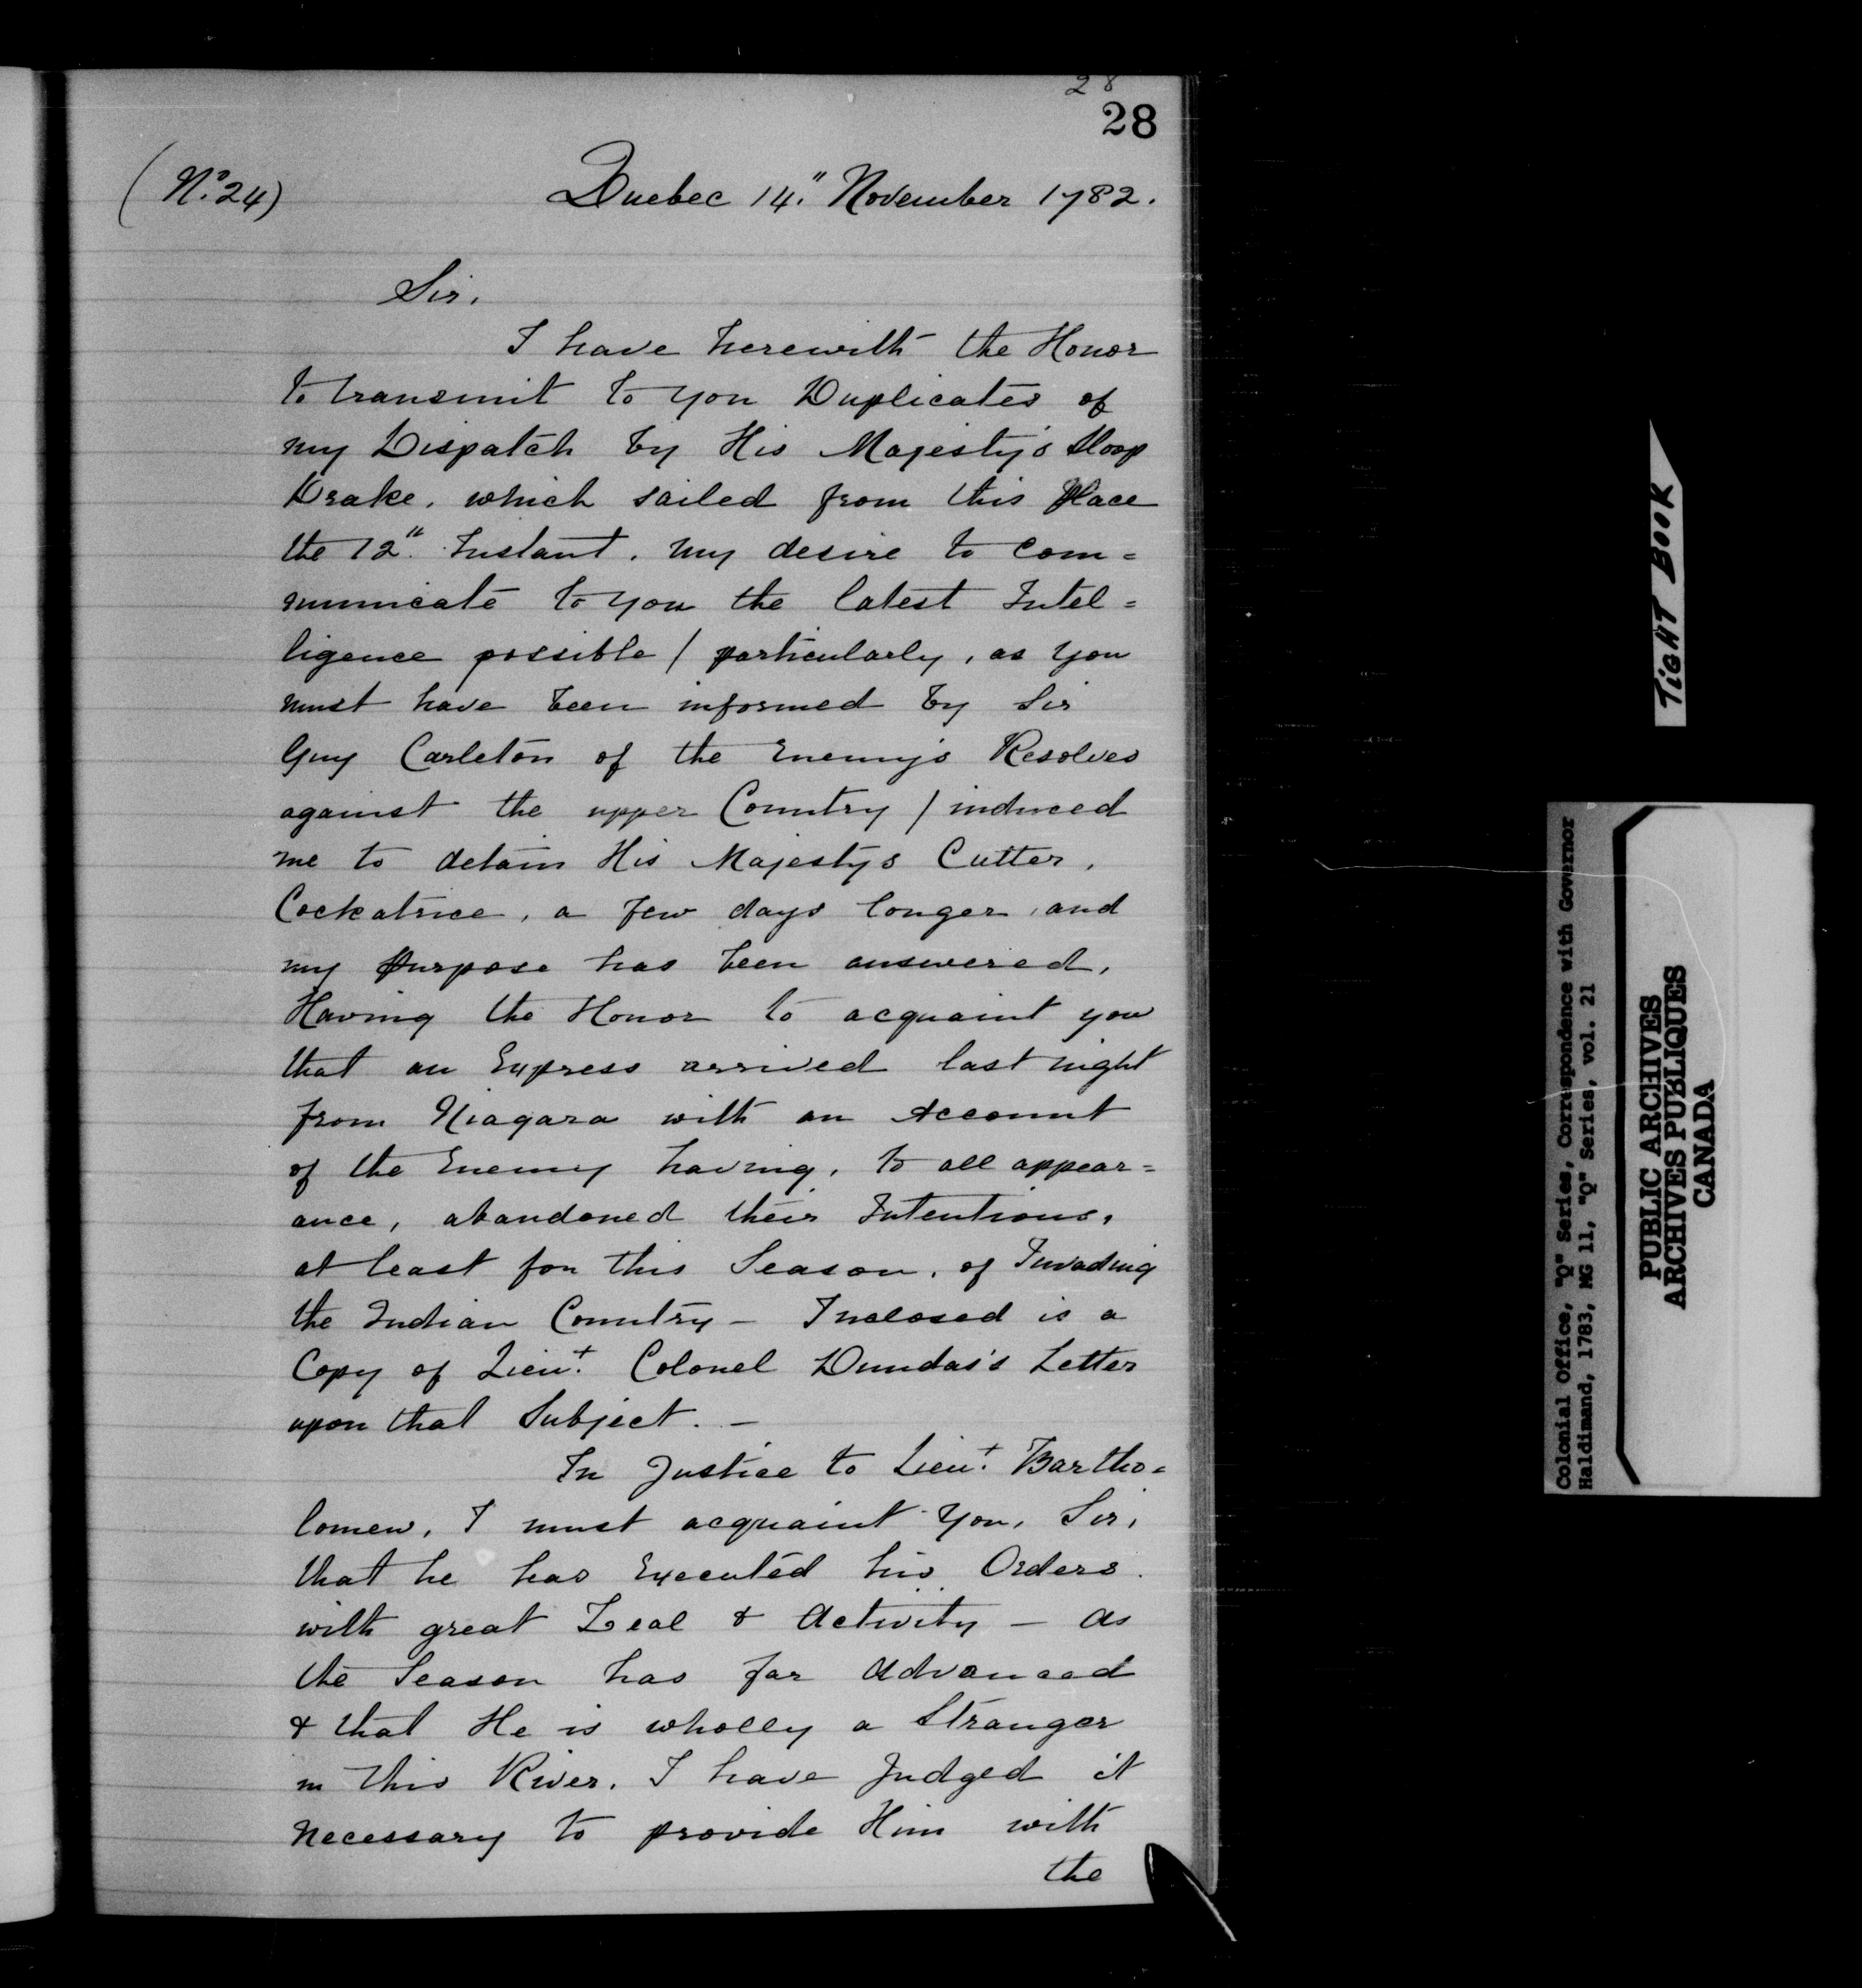 28
28
(No. 24)
Quebec 14." November 1782.
Sir,
I have herewith the Honor
to transmit to you Duplicates of
my Dispatch by His Majesty's Sloop
Drake, which sailed from this Place
the 12". Instant. my desire to com=
municate to you the latest Intel=
ligence possible / particularly, as you
must have been informed by Sir
Guy Carleton of the Enemy's Resolves
against the upper Country / induced
me to detain His Majestys Cutter,
Cockatrice, a few days longer, and
my Purpose has been answered,
Having the Honor to acquaint you
that an Express arrived last night
from Niagara with an Account
of the Enemy having, to all appear=
ance, abandoned their Intentions,
at least for this Season, of Invading
the Indian Country — Inclosed is a
Copy of Lieut. Colonel Dundas's Letter
upon that Subject. —
In Justice to Lieut. Bartho=
lomew, I must acquaint You, Sir,
that he has Executed his Orders
with great Zeal & Activity — as
the Season has far Advanced
& that He is wholly a Stranger
in this River, I have Judged it
necessary to provide Him with
the
TIGHT BOOK
Colonial Office, "Q" Series, Correspondence with Governor
Haldimand, 1783, MG 11, "Q" Series, vol. 21
PUBLIC ARCHIVES
ARCHIVES PUBLIQUES
CANADA